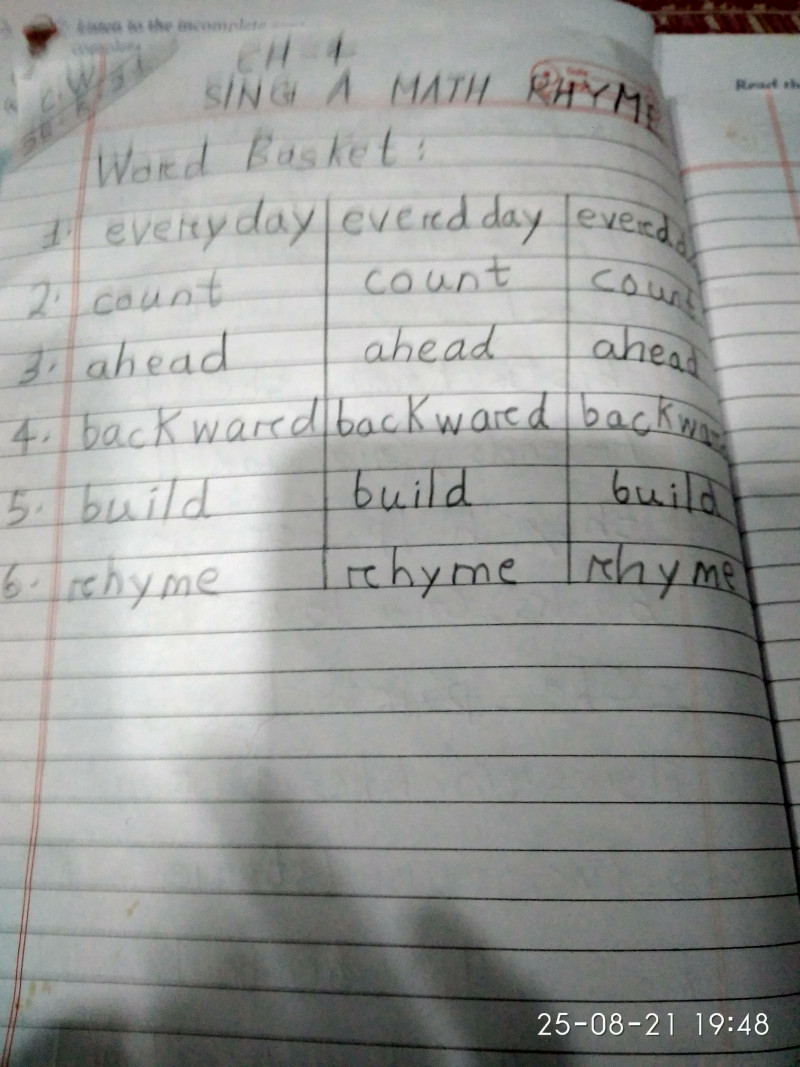 Listen to the incomplete
C.W
CH-1
SING A MATH RHYME
Read th
Word Basket:
1. everyday everd day everd da
2. count count count
3. ahead ahead ahead
4. backward backward backwar
5. build build build
6. rhyme rhyme rhyme
25-08-21 19:48